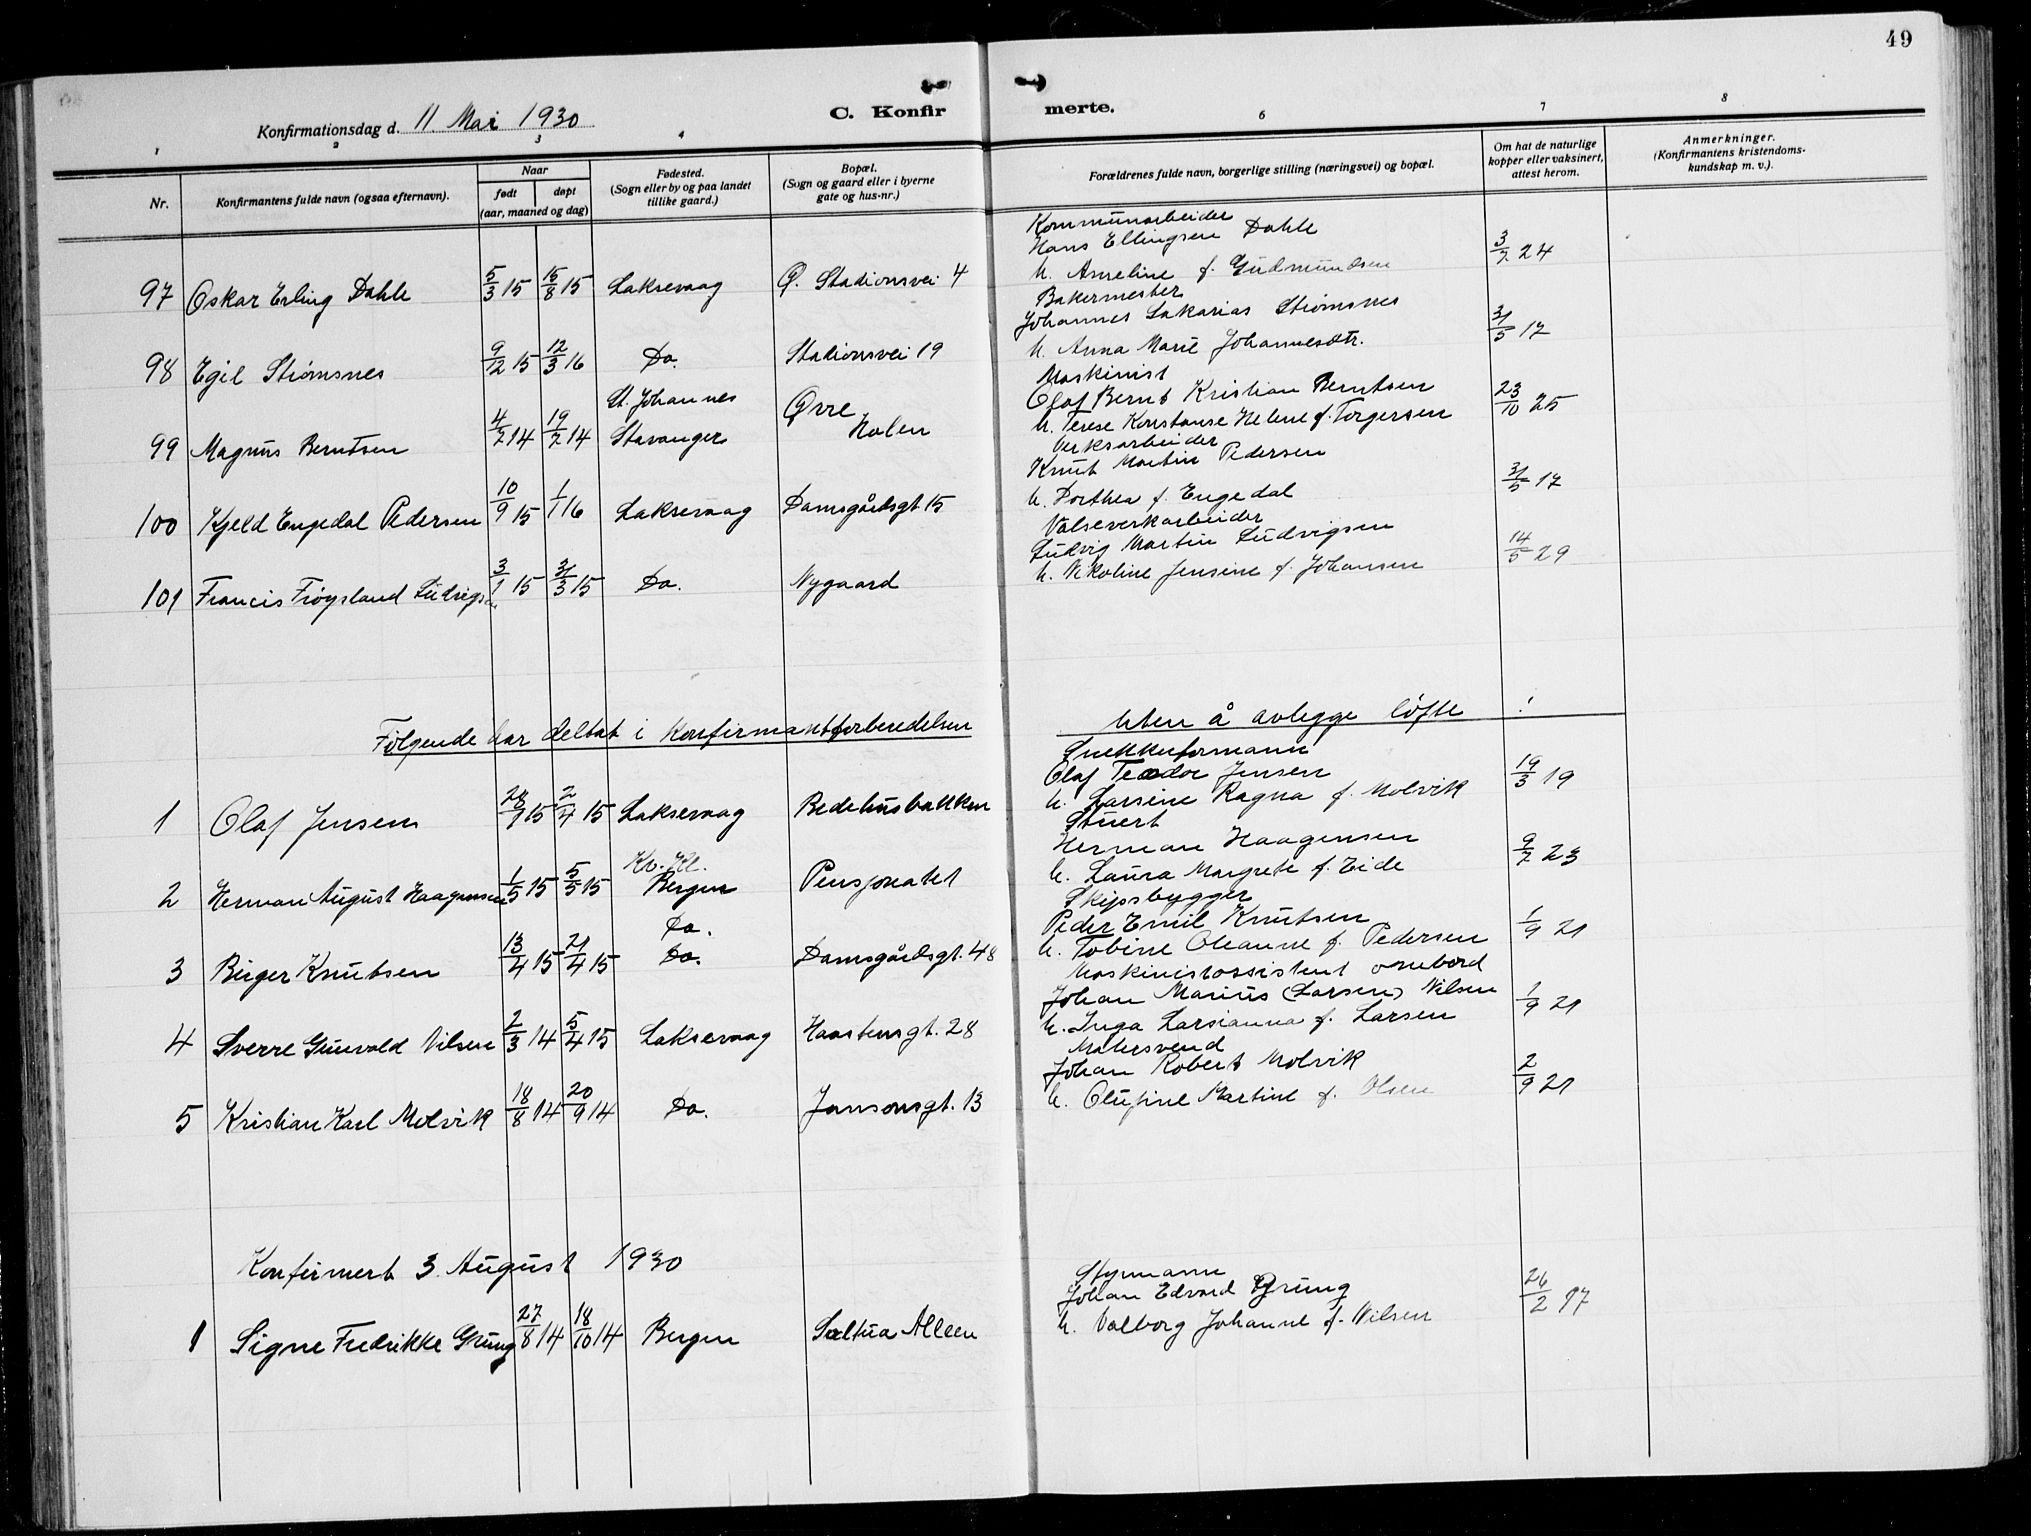 49
Konfirmationsdag d. 11 Mai 1930
C. Konfirmerte.
1 2 3 4 6 7 8
Nr.
Konfirmantens fulde navn (ogsaa efternavn).
Naar
født døpt
(aar, maaned og dag)
Fødested.
(Sogn eller by og paa landet
tillike gaard.)
Bopæl.
(Sogn og gaard eller i byerne
gate og hus-nr.)
Forældrenes fulde navn, borgerlige stilling (næringsvei) og bopæl.
Om hat de naturlige
kopper eller vaksinert,
attest herom.
Anmerkninger.
(Konfirmantens kristendoms-
kundskap m. v.).
Kommunarbeider
Hans Ellingsen Dahle
97 Oskar Erling Dahle 5/3 15 15/8 15 Laksevaag Ø. Stadionsvei 4 h. Anneline f. Gudmundsen 3/7 24
Bakermester
Johannes Sakarias Strømsnes
98 Egil Strømsnes 9/12 15 12/3 16 Do. Stadionsvei 19 h. Anna Marie Johannesdtr. 31/5 17
Maskinist
Olaf Bernt Kristian Berntsen
99 Magnus Berntsen 4/2 14 19/2 14 St. Johannes Stavanger Øvre Holen h. Terese Konstanse Helene f. Torgersen 23/10 25
Verksarbeider
Knut Martin Pedersen
100 Kjeld Engedal Pedersen 10/9 15 1/1 16 Laksevaag Damsgårdsgt 15 h. Dorthea f. Engedal 31/5 17
Valseverkarbeider
Ludvig Martin Ludvigsen
101 Francis Frøysland Ludvigsen 3/1 15 31/3 15 Do. Nygaard h. Nikoline Jensine f. Johansen 14/5 29
Følgende har deltat i konfirmantforberedelsen uten å avlegge løfte :
Snekkerformann
Olaf Teodor Jensen
1 Olaf Jensen 28/1 15 2/4 15 Laksevaag Bedehusbakken h. Larsine Ragna f. Molvik 19/3 19
Stuert
Herman Haagensen
2 Herman August Haagensen 1/5 15 5/5 15 Kv. Kl. Bergen Pensjonatet h. Laura Margrete f. Eide 9/7 23
Skipsbygger
Peder Emil Knutsen
3 Birger Knutsen 13/4 15 21/4 15 Do. Do. Damsgårdsgt. 48 h. Tobine Oleanne f. Pedersen 1/9 21
Maskinistassistent ombord
Johan Marius (Larsen) Nilsen
4 Sverre Grunvald Nilsen 2/3 14 5/4 15 Laksevaag Haastensgt. 28 h. Inga Larsianna f. Larsen 1/9 21
Malersvend
Johan Robert Molvik
5 Kristian Karl Molvik 18/8 14 20/9 14 Do. Jansonsgt. 13 h. Olufine Martine f. Olsen 2/9 21
Konfirmert 3 August 1930
Styrmann
Johan Edvard Grung
1 Signe Fredrikke Grung 27/8 14 18/10 14 Bergen Sæltua Alleen h. Valborg Johanne f. Nilsen 26/2 17